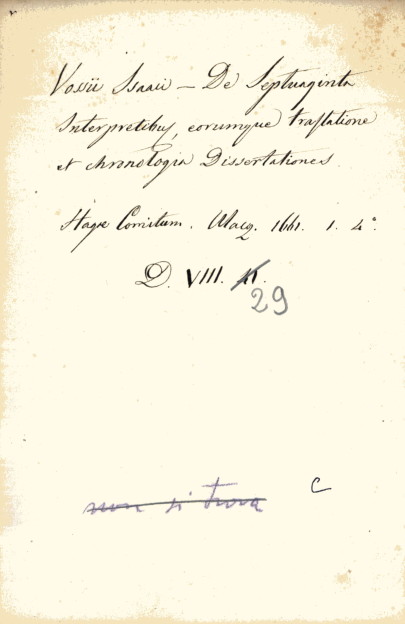 Vossii Isaaii – De Septuaginta
Interpretibus, eorumque traslatione
et chronologia Dissertationes.
Hagæ Comitum. Ulacq. 1661. 1. 4°.
D. VIII.
29
non si trova
C